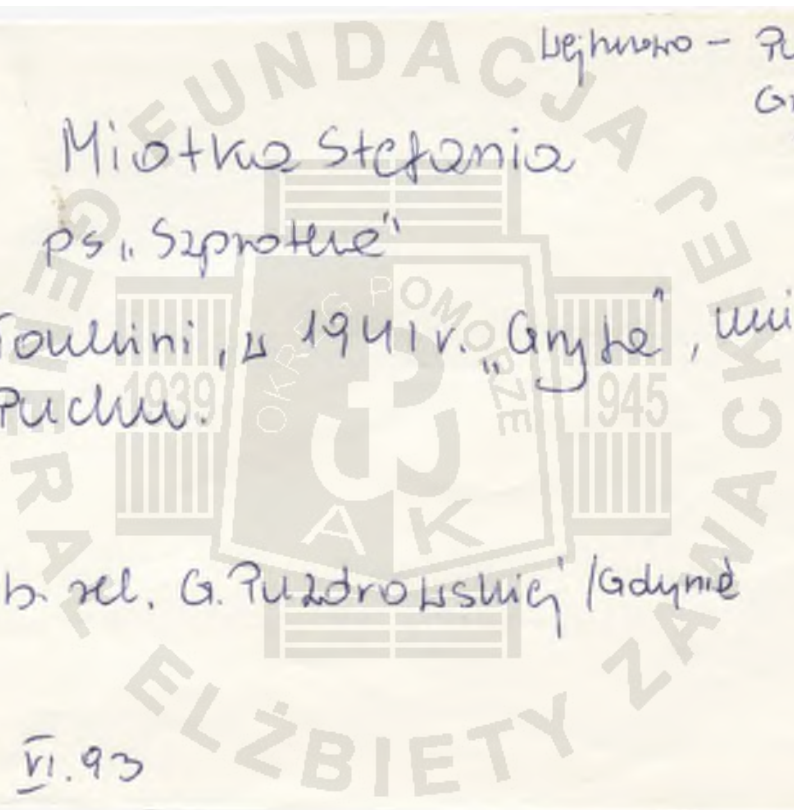 Wejherowo – Pu
Gr
Miotka Stefania
ps. „Szprotka"
Toulini, w 1941 r. „Gryfa",
Pucku.
b. rel. G. Puzdrowskiej /Gdynia
VI.93
FUNDACJA GENERAŁ ELŻBIETY ZAWACKIEJ
OKRĘG POMORZE
1939
1945
AK